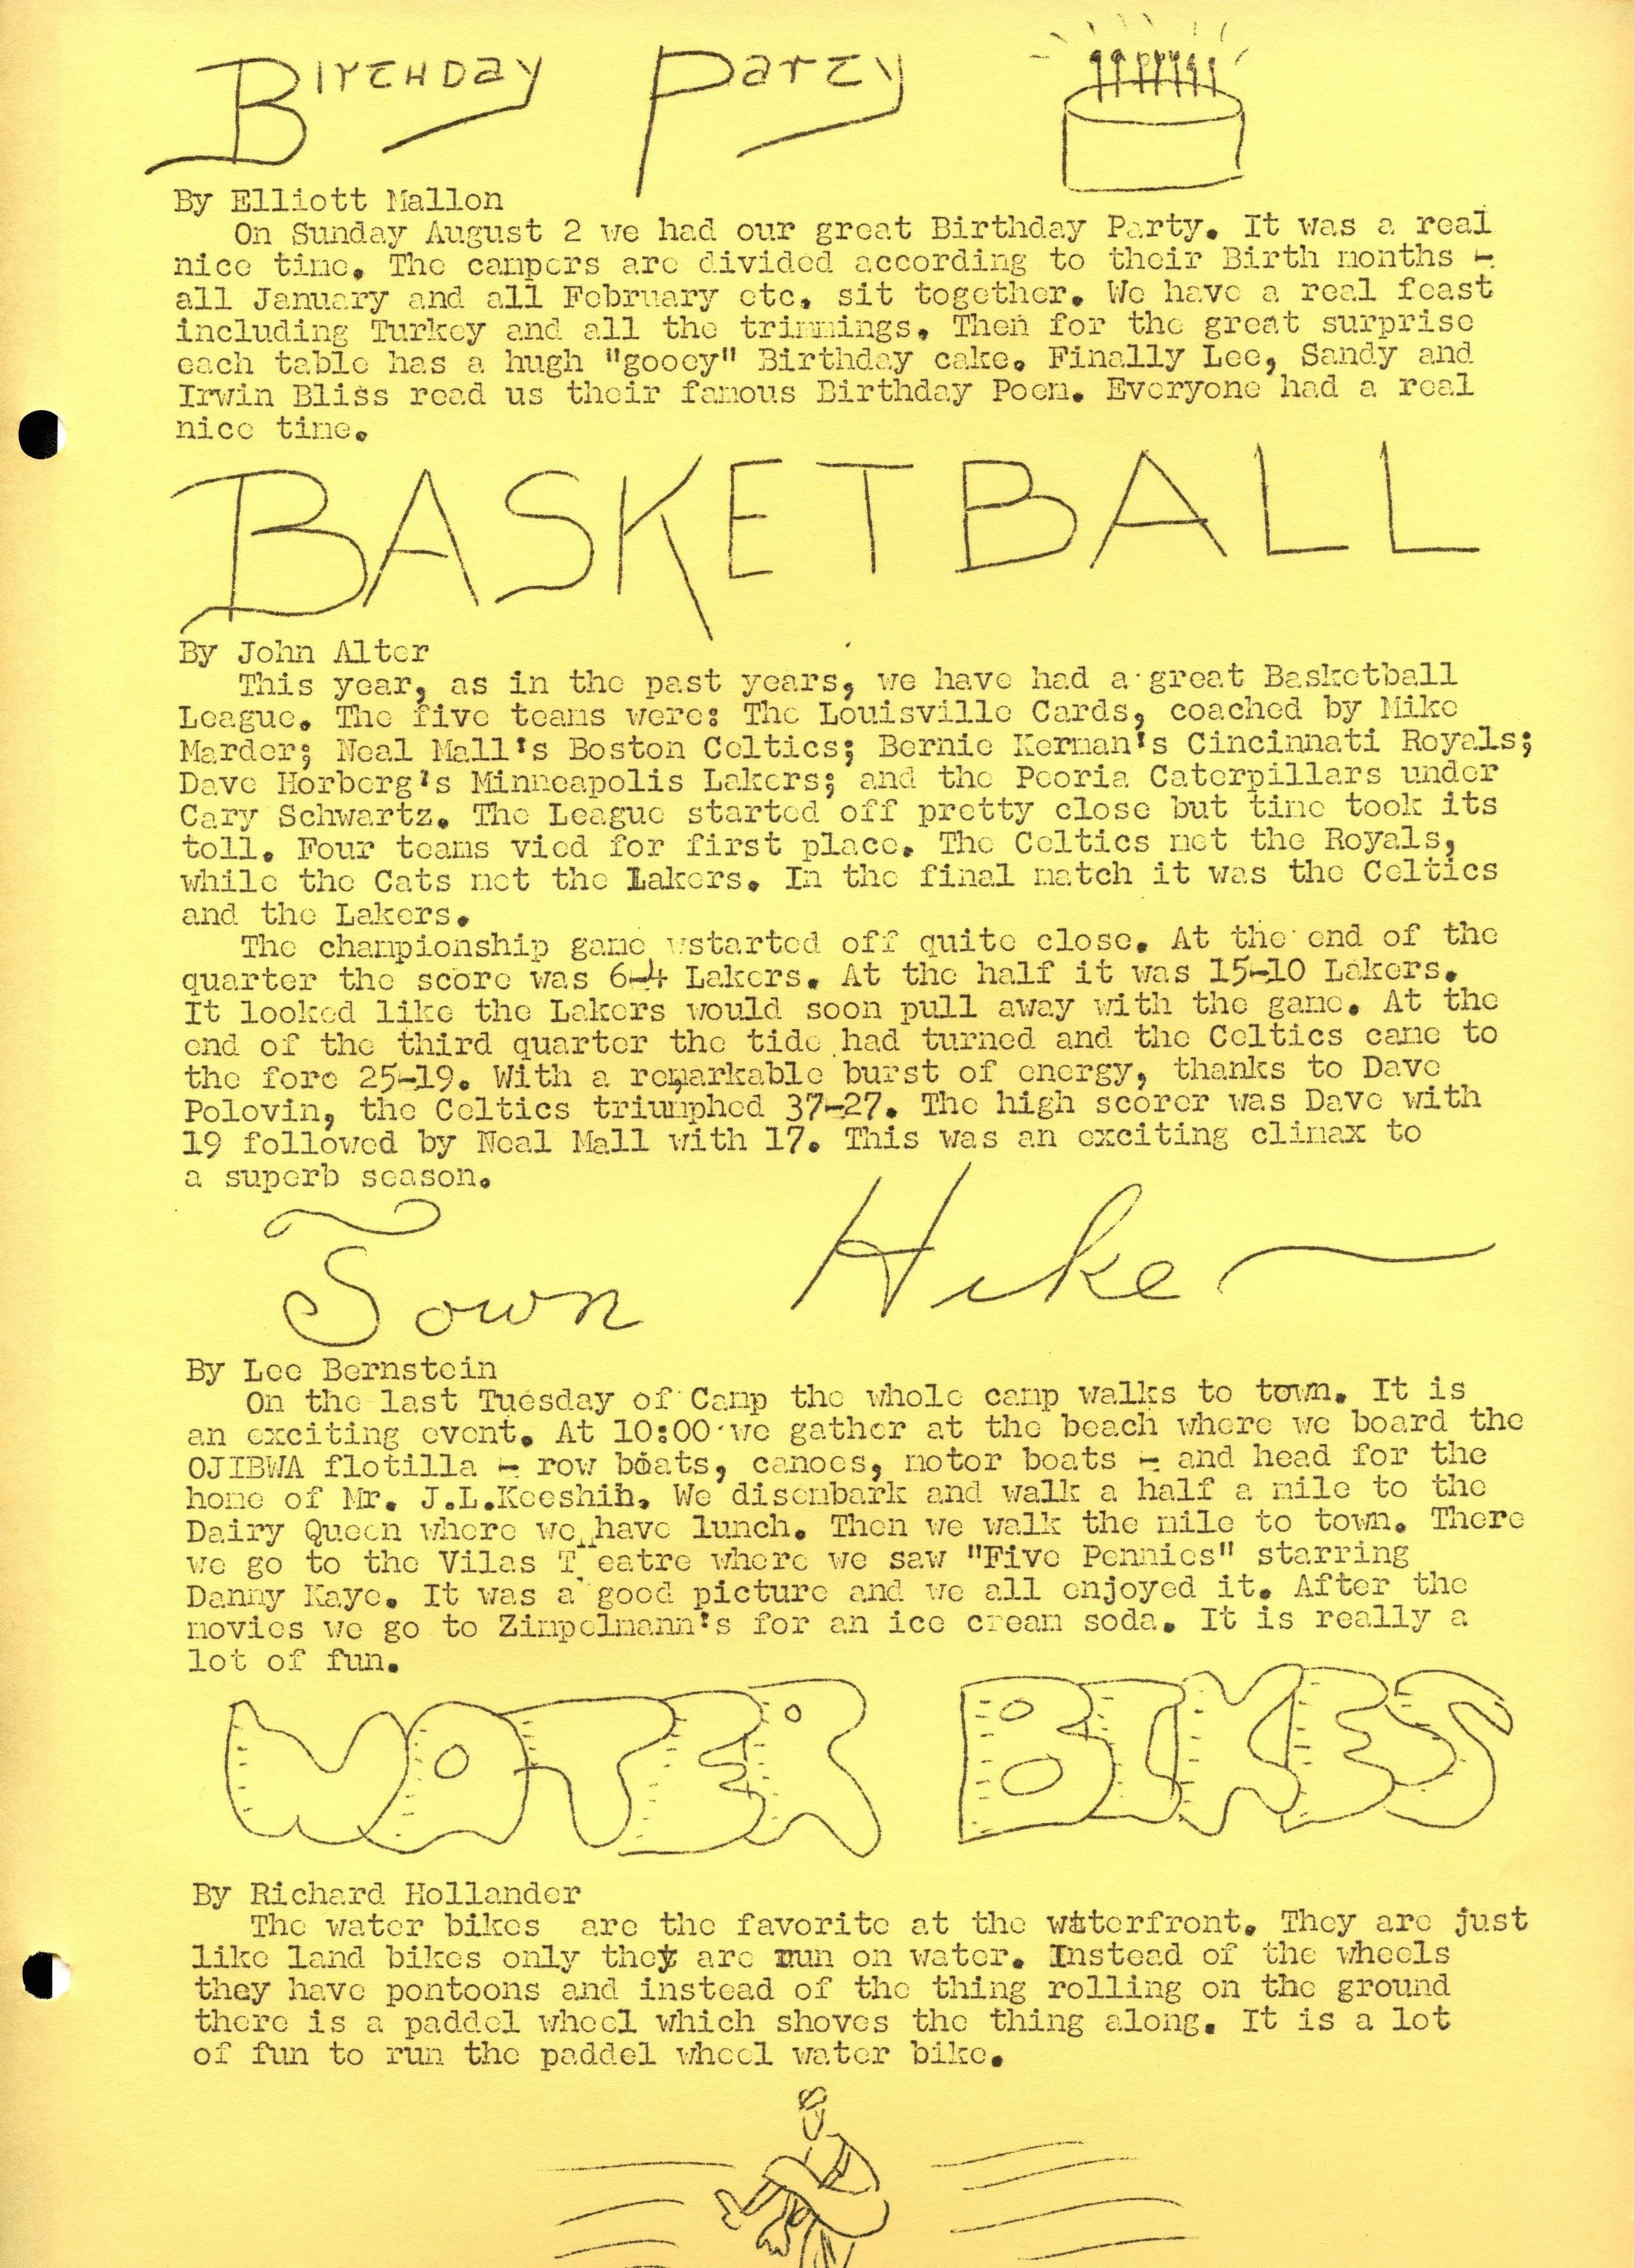 Birthday Party
By Elliott Mallon
On Sunday August 2 we had our great Birthday Party. It was a real
nice time. The campers are divided according to their Birth months -
all January and all February etc. sit together. We have a real feast
including Turkey and all the trimmings. Then for the great surprise
each table has a hugh "gooey" Birthday cake. Finally Lee, Sandy and
Irwin Bliss read us their famous Birthday Poem. Everyone had a real
nice time.
BASKETBALL
By John Alter
This year, as in the past years, we have had a great Basketball
League. The five teams were: The Louisville Cards, coached by Mike
Marder; Neal Mall's Boston Celtics; Bernie Kerman's Cincinnati Royals;
Dave Horberg's Minneapolis Lakers; and the Peoria Caterpillars under
Cary Schwartz. The League started off pretty close but time took its
toll. Four teams vied for first place. The Celtics met the Royals,
while the Cats met the Lakers. In the final match it was the Celtics
and the Lakers.
The championship game wstarted off quite close. At the end of the
quarter the score was 6-4 Lakers. At the half it was 15-10 Lakers.
It looked like the Lakers would soon pull away with the game. At the
end of the third quarter the tide had turned and the Celtics came to
the fore 25-19. With a remarkable burst of energy, thanks to Dave
Polovin, the Celtics triumphed 37-27. The high scorer was Dave with
19 followed by Neal Mall with 17. This was an exciting climax to
a superb season.
Town Hike
By Lee Bernstein
On the last Tuesday of Camp the whole camp walks to town. It is
an exciting event. At 10:00 we gather at the beach where we board the
OJIBWA flotilla - row boats, canoes, motor boats - and head for the
home of Mr. J.L.Keeshin. We disembark and walk a half a mile to the
Dairy Queen where we have lunch. Then we walk the mile to town. There
we go to the Vilas T eatre where we saw "Five Pennies" starring
Danny Kaye. It was a good picture and we all enjoyed it. After the
movies we go to Zimpelmann's for an ice cream soda. It is really a
lot of fun.
WATER BIKES
By Richard Hollander
The water bikes are the favorite at the waterfront. They are just
like land bikes only they are run on water. Instead of the wheels
they have pontoons and instead of the thing rolling on the ground
there is a paddel wheel which shoves the thing along. It is a lot
of fun to run the paddel wheel water bike.